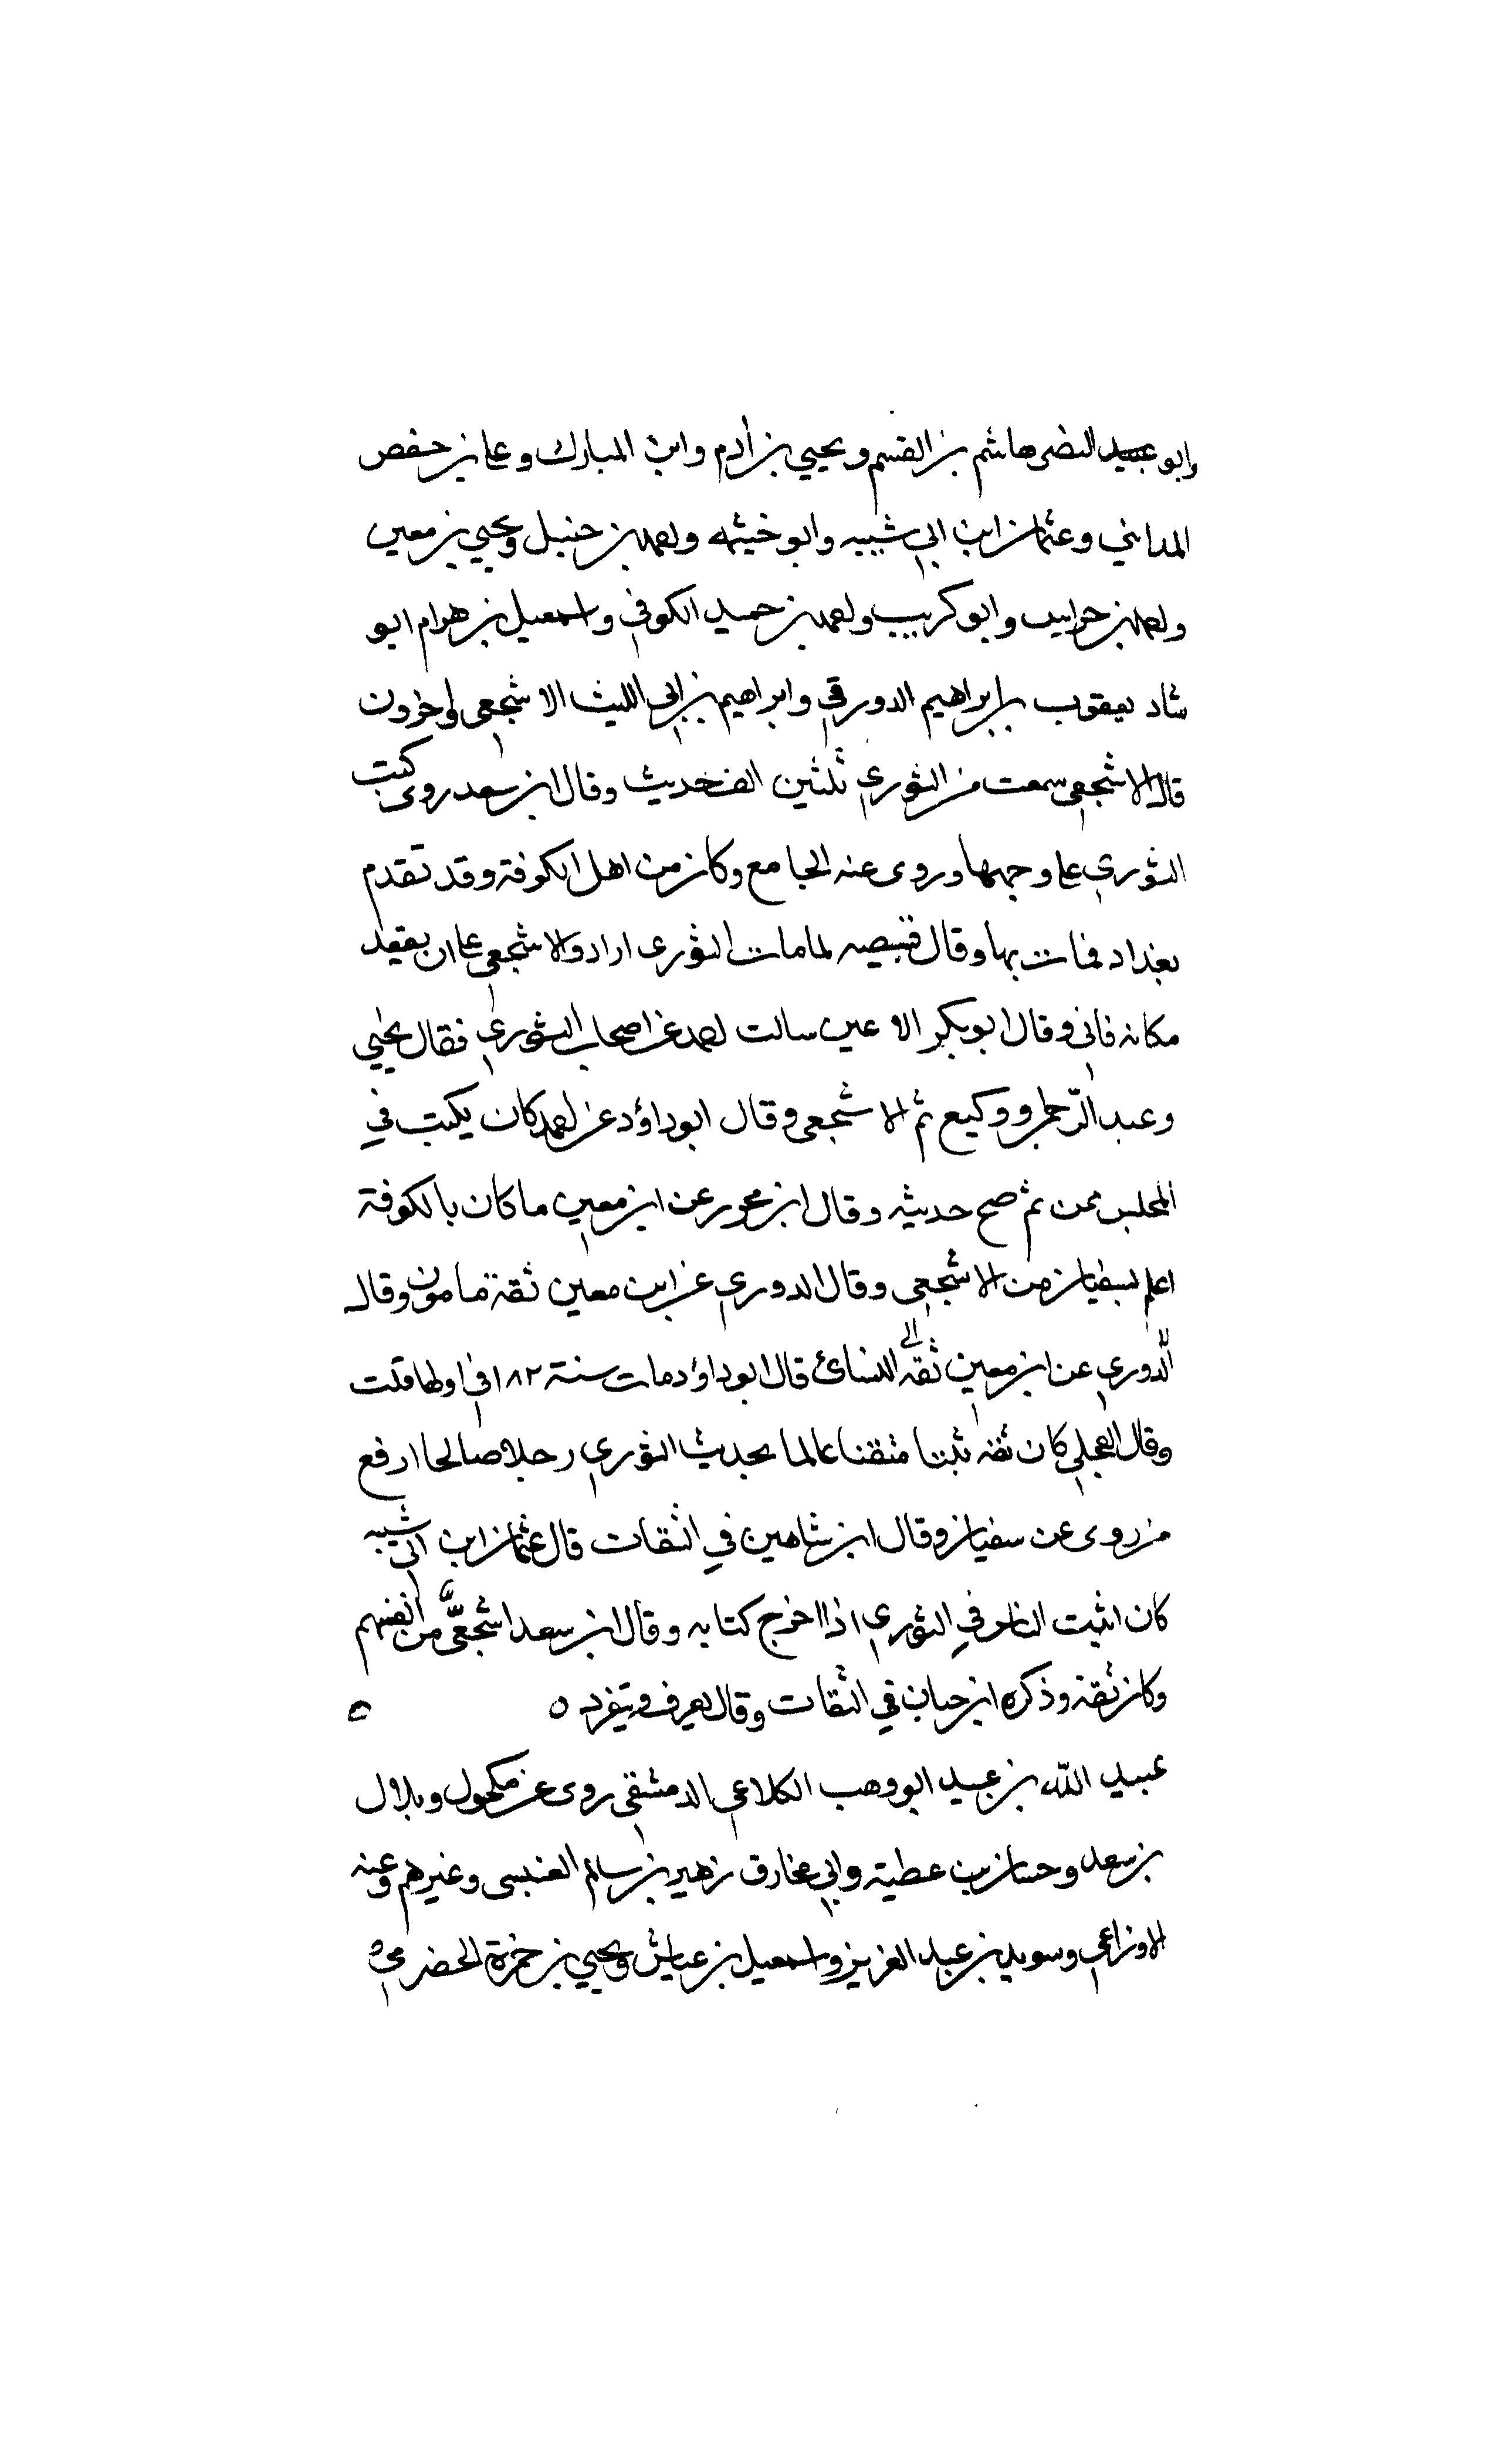 وابو عبيد النضر هاشم بن القسم ويحيي بن أدم وابن المبارك وعلي بن حفص
المدايني وعثمان ابن ابي شيبه وابو خيثمه واحمد بن حنبل ويحيي بن معين
واحمد بن حواس وابو كريب واحمد بن حميد الكوفي واسمعيل بن بهرام ابو
يعقوب بن ابراهيم الدورقي وابراهيم بن ابي الليث الاشجعي واخرون
قال الاشجعي سمعت من الثوري ثلثين الف حديث وقال ابن سعد روى كتب
الثوري على وجهها وروى عنه الجامع وكان من اهل الكوفة وقد تقدم
بغداد فمات بها وقال قبيصه لما مات الثوري ارادوا الاشجعي على ان يقعد
مكانه فابى وقال ابو بكر الاعين سالت احمد عن اصحاب الثوري فقال يحيي
وعبد الرّحمن ووكيع ثم الاشجعي وقال ابو داؤد عن احمد كان يكتب في
المجلس فمن ثم صح حديثه وقال ابن محرز عن ابن معين ما كان بالكوفة
اعلم بسفيان من الاشجعي وقال الدوري عن ابن معين ثقة مامون وقال
الدّوري عن ابن معين ثقه النسائ قال ابو داؤد مات سنة ١٨٢ في اولها قلت
وقال العجلي كان ثقه ثبتا متقنا عالما بحديث الثوري رجلا صالحا ارفع
من روى عن سفيان وقال ابن شاهين في الثقات قال عثمان ابن ابي شيبه
كان اثبت الناس في الثوري اذا اخرج كتابه وقال ابن سعد اشجعيّ من انفسهم
وكان ثقة وذكره ابن حبان في الثقات وقال يعرف ويتفرد ه
عبيد الله بن عبيد ابو وهب الكلاعي الدمشقي روى عن مكحول وبلال
بن سعد وحسان بن عطية وابي مخارق زهير بن سالم العنسي وغيرهم وعنه
الاوزاعي وسويد بن عبد العزيز واسمعيل بن عياش ويحيي بن حمزة الحضرمي